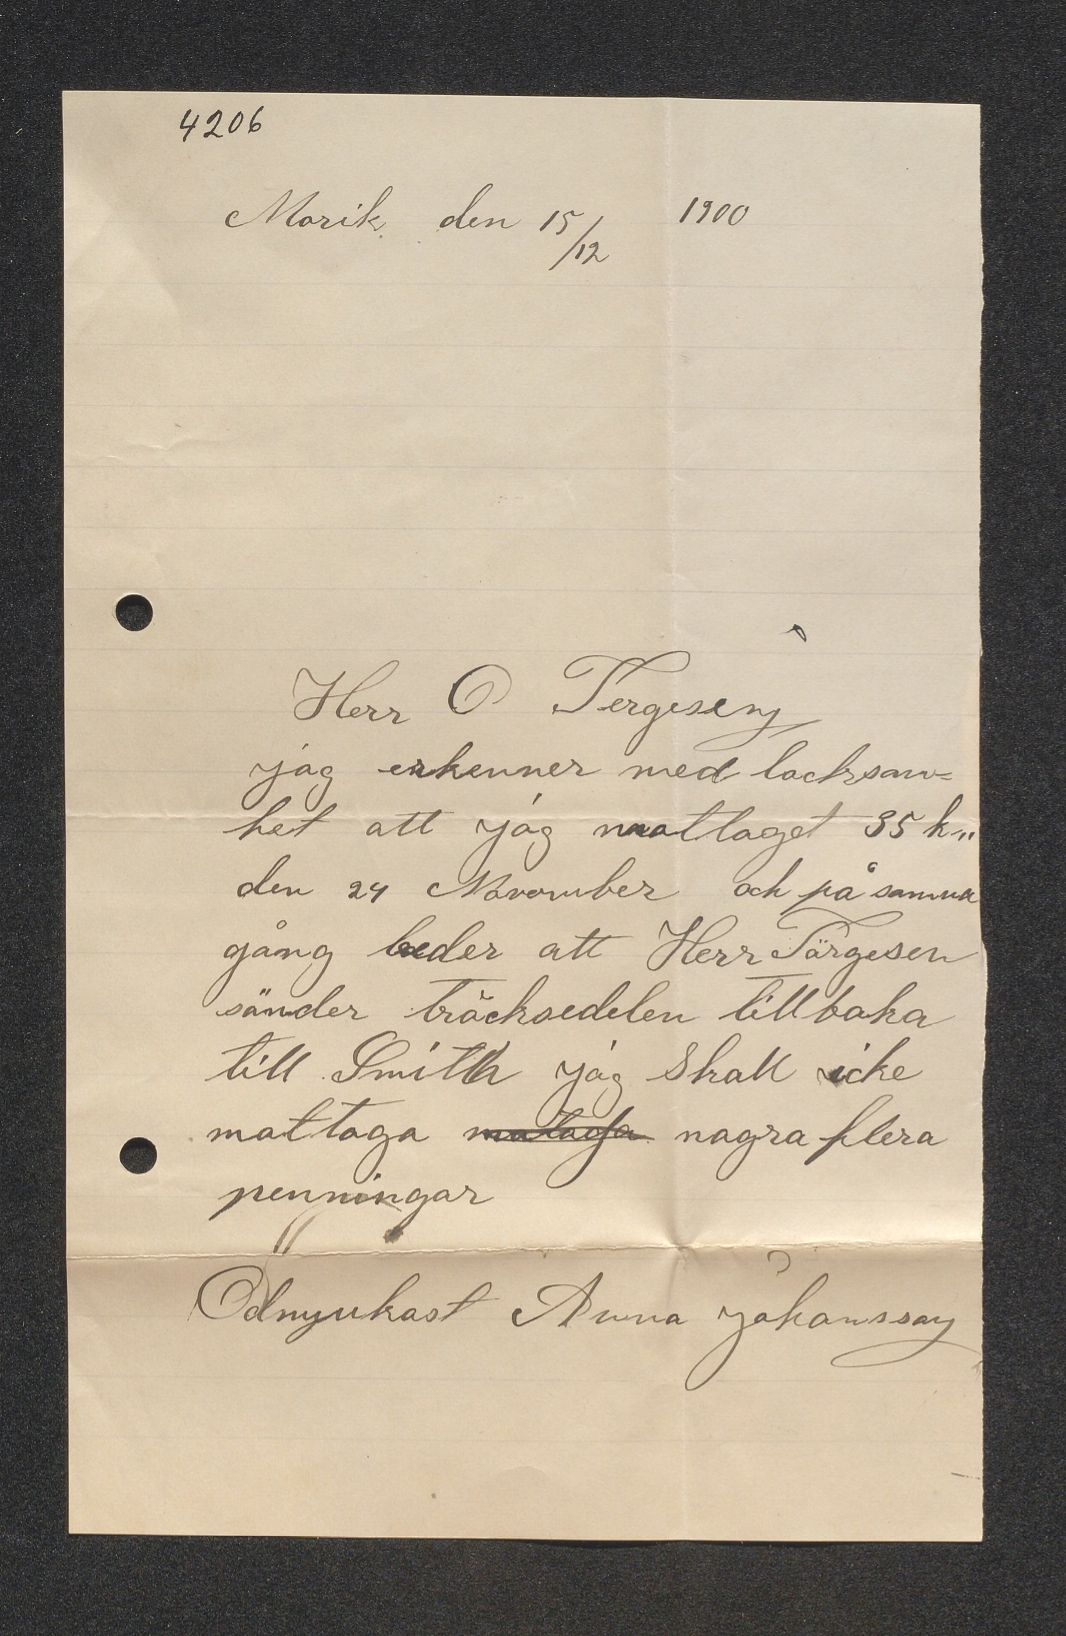 4206
Morik den 15/12 1900
Herr O Tergesen
jag erkenner med tacksam=
het att jag mattaget 35 k"
den 24 Novomber och på samma
gång beder att Herr Törgesen
sänder träcksedelen tillbaka
till Smith jag skall icke
mattaga mataga nagra flera
penningar
Ödmyukast Anna Johansson